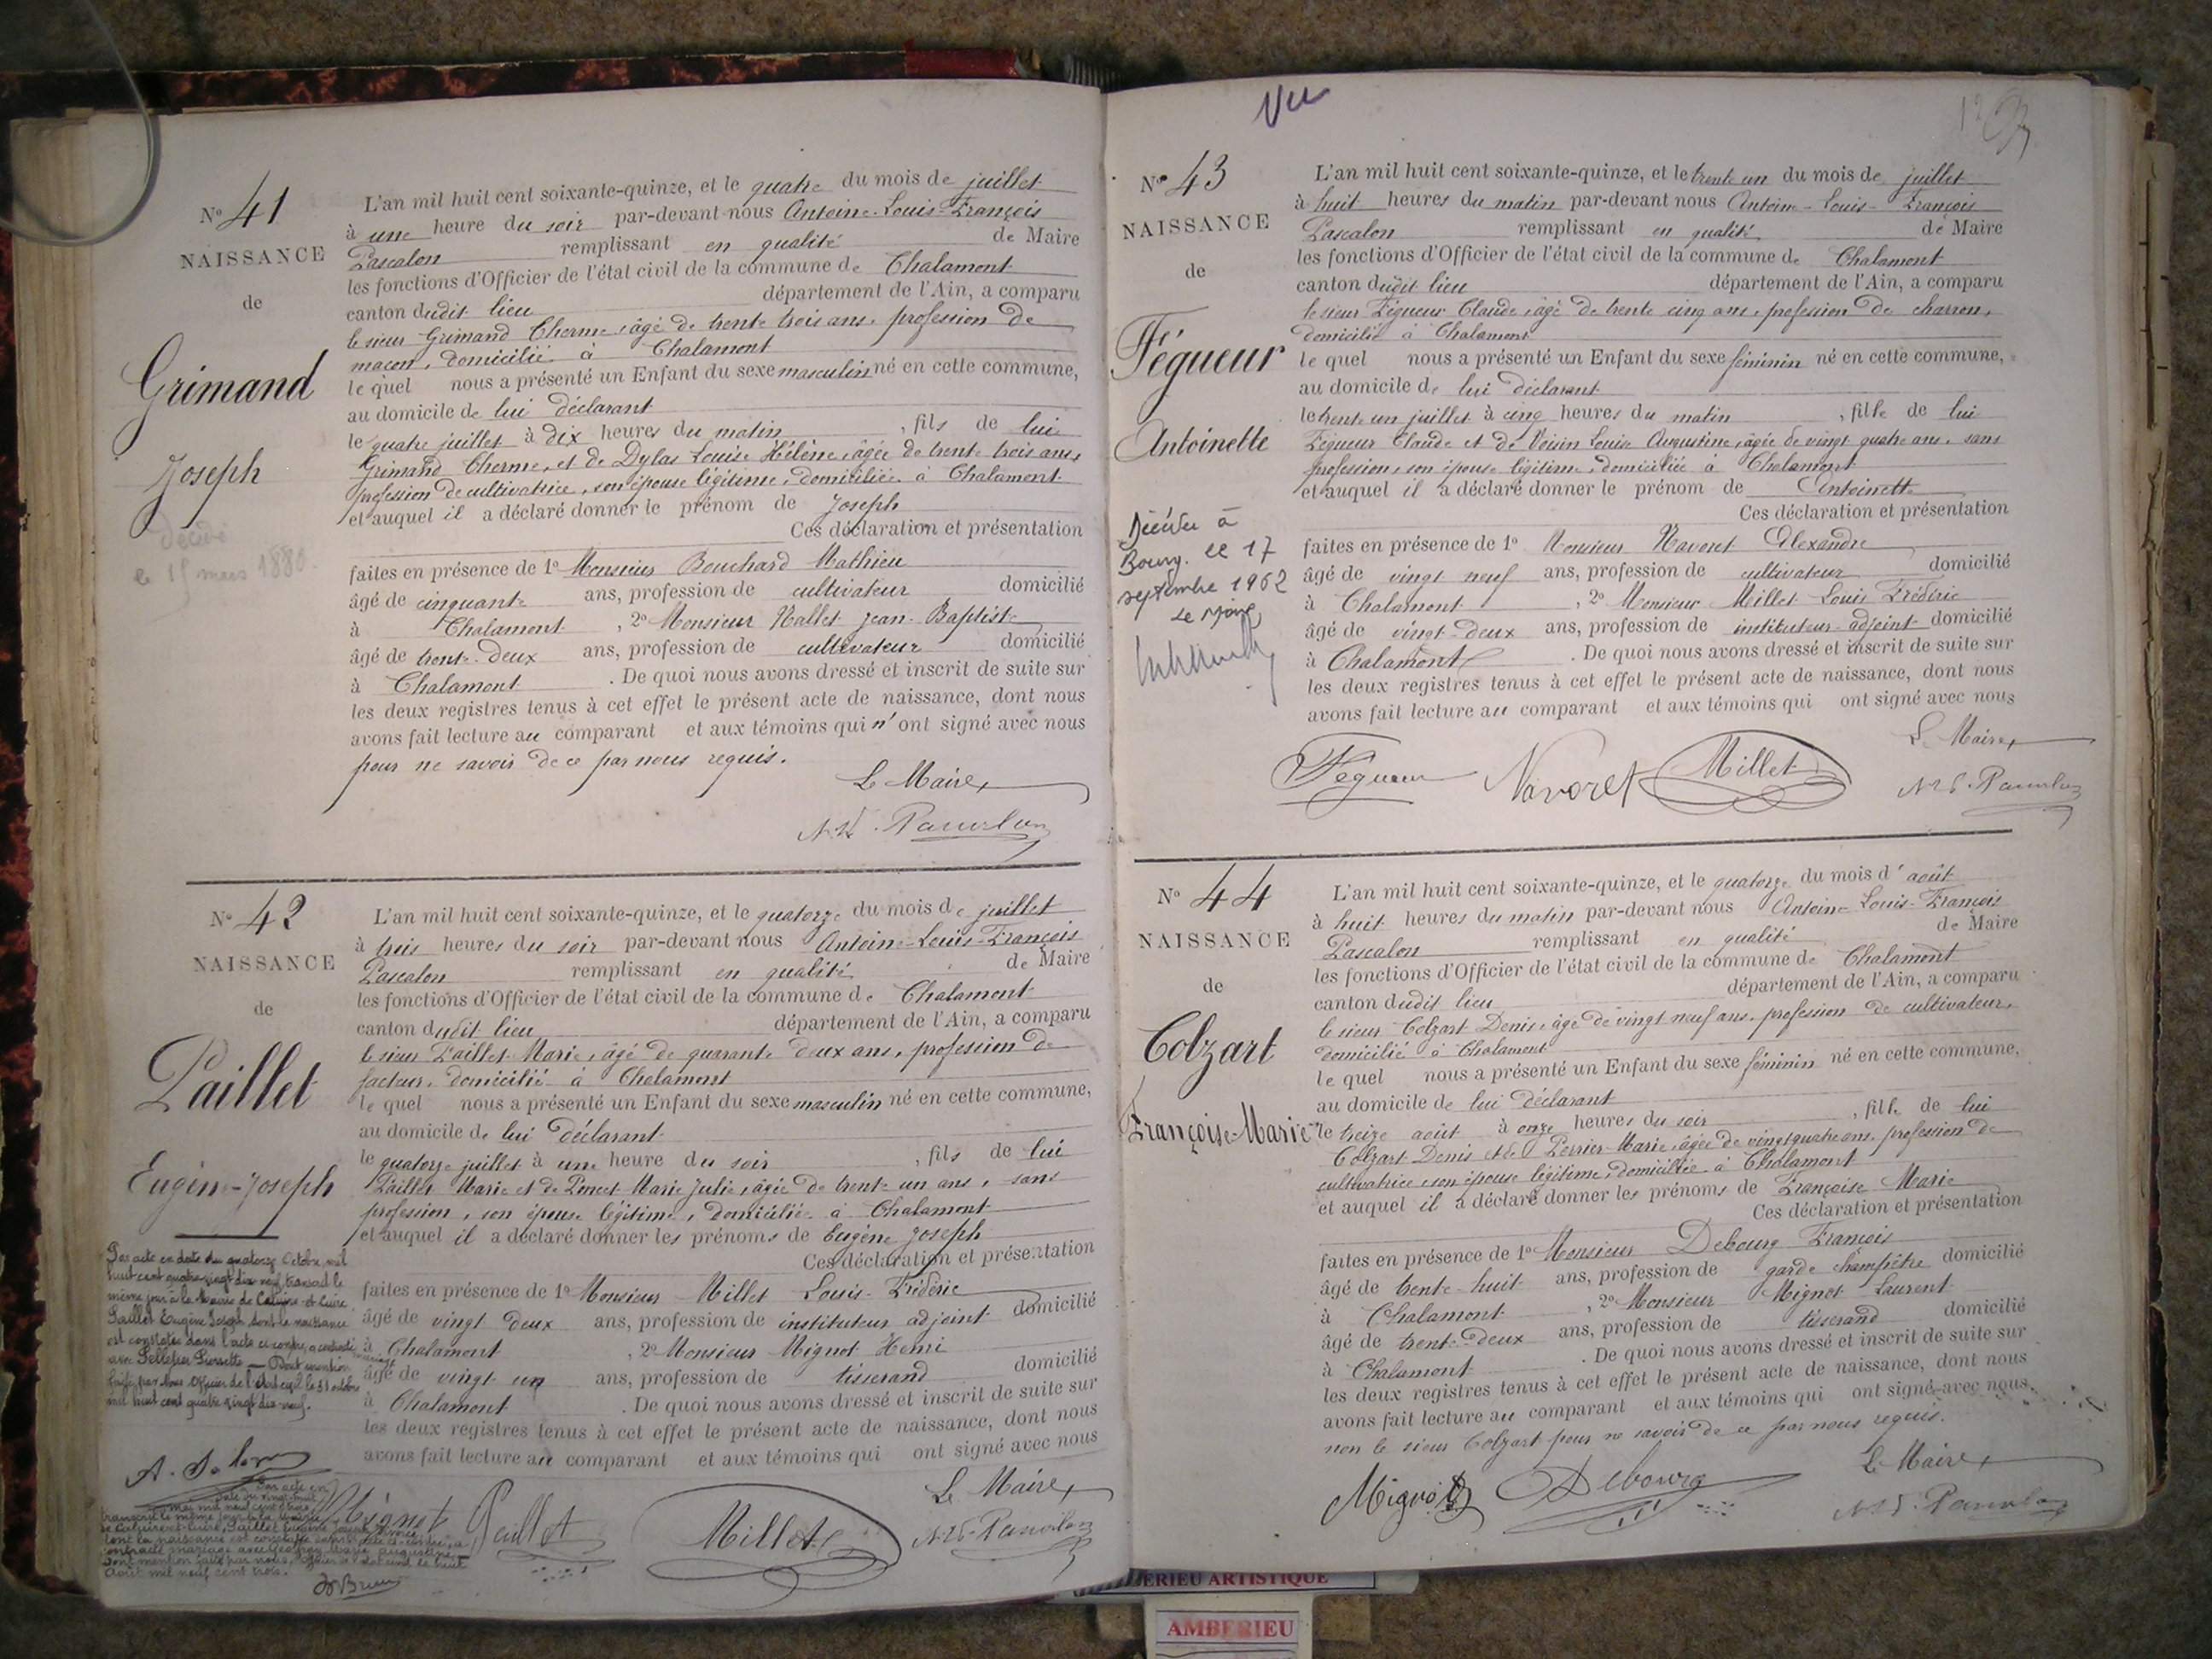 Nº 41
NAISSANCE
de
Grimand
Joseph
Décédé
le 15 mars 1880.
L'an mil huit cent soixante-quinze, et le quatre du mois de juillet
à une heure du soir par-devant nous Antoine-Louis-François
Pascalon remplissant en qualité de Maire
les fonctions d'Officier de l'état civil de la commune de Chalamont
canton dudit lieu département de l'Ain, a comparu
le sieur Grimand Cherme, âgé de trente trois ans, profession de
maçon, domicilié à Chalamont
le quel nous a présenté un Enfant du sexe masculin né en cette commune,
au domicile de lui déclarant
le quatre juillet à dix heures du matin, fils de lui
Grimand Cherme, et de Dylas Louise Hélène, âgée de trente trois ans,
profession de cultivatrice, son épouse légitime, domiciliée à Chalamont
et auquel il a déclaré donner le prénom de Joseph
Ces déclaration et présentation
faites en présence de 1º Monsieur Bouchard Mathieu
âgé de cinquante ans, profession de cultivateur domicilié
à Chalamont, 2º Monsieur Nallet Jean-Baptiste
âgé de trente-deux ans, profession de cultivateur domicilié
à Chalamont. De quoi nous avons dressé et inscrit de suite sur
les deux registres tenus à cet effet le présent acte de naissance, dont nous
avons fait lecture au comparant et aux témoins qui n'ont signé avec nous
pour ne savoir de ce par nous requis.
Le Maire,
Nº 42
NAISSANCE
de
Paillet
Eugène-Joseph
Par acte en date du quatorze Octobre mil
huit cent quatre vingt dix neuf, transcrit le
même jour à la Mairie de Caluire-et-Cuire
Paillet Eugène Joseph dont la naissance
est constatée dans l'acte ci-contre, a contracté
mariage
avec Pelletier Pierrette — Dont mention
faite par Nous Officier de l'état civil le 31 octobre
mil huit cent quatre vingt dix-neuf.
Par acte en
date du vingt-huit
mai mil neuf cent trois,
transcrit le même jour à la Mairie
de Caluire-et-Cuire, Paillet Eugène Joseph
dont la naissance est constatée dans l'acte ci-contre, a
contracté mariage avec Marie Augustine
Dont mention faite par nous, Officier de l'état civil le huit
Août mil neuf cent trois.
L'an mil huit cent soixante-quinze, et le quatorze du mois de juillet
à trois heures du soir par-devant nous Antoine-Louis-François
Pascalon remplissant en qualité de Maire
les fonctions d'Officier de l'état civil de la commune de Chalamont
canton dudit lieu département de l'Ain, a comparu
le sieur Paillet Marie, âgé de quarante deux ans, profession de
facteur, domicilié à Chalamont
le quel nous a présenté un Enfant du sexe masculin né en cette commune,
au domicile de lui déclarant
le quatorze juillet à une heure du soir, fils de lui
Paillet Marie et de Poncet Marie Julie, âgée de trente un ans, sans
profession, son épouse légitime, domiciliée à Chalamont
et auquel il a déclaré donner les prénoms de Eugène Joseph
Ces déclaration et présentation
faites en présence de 1º Monsieur Millet Louis-Frédéric
âgé de vingt deux ans, profession de instituteur adjoint domicilié
à Chalamont, 2º Monsieur Mignot Henri
âgé de vingt un ans, profession de tisserand domicilié
à Chalamont. De quoi nous avons dressé et inscrit de suite sur
les deux registres tenus à cet effet le présent acte de naissance, dont nous
avons fait lecture au comparant et aux témoins qui ont signé avec nous
Le Maire,
Mignot Paillet Millet
Vu
Nº 43
NAISSANCE
de
Fégueur
Antoinette
Décédée à
Bourg. le 17
septembre 1962
Le Maire
L'an mil huit cent soixante-quinze, et le trente un du mois de juillet
à huit heures du matin par-devant nous Antoine-Louis-François
Pascalon remplissant en qualité de Maire
les fonctions d'Officier de l'état civil de la commune de Chalamont
canton dudit lieu département de l'Ain, a comparu
le sieur Fégueur Claude, âgé de trente cinq ans, profession de charron,
domicilié à Chalamont
le quel nous a présenté un Enfant du sexe féminin né en cette commune,
au domicile de lui déclarant
le trente un juillet à cinq heures du matin, fille de lui
Fégueur Claude et de Voisin Louise Augustine, âgée de vingt quatre ans, sans
profession, son épouse légitime, domiciliée à Chalamont
et auquel il a déclaré donner le prénom de Antoinette
Ces déclaration et présentation
faites en présence de 1º Monsieur Navoret Alexandre
âgé de vingt neuf ans, profession de cultivateur domicilié
à Chalamont, 2º Monsieur Millet Louis Frédéric
âgé de vingt-deux ans, profession de instituteur-adjoint domicilié
à Chalamont. De quoi nous avons dressé et inscrit de suite sur
les deux registres tenus à cet effet le présent acte de naissance, dont nous
avons fait lecture au comparant et aux témoins qui ont signé avec nous
Le Maire,
Fégueur Navoret Millet
Nº 44
NAISSANCE
de
Colzart
Françoise-Marie
L'an mil huit cent soixante-quinze, et le quatorze du mois d'août
à huit heures du matin par-devant nous Antoine-Louis-François
Pascalon remplissant en qualité de Maire
les fonctions d'Officier de l'état civil de la commune de Chalamont
canton dudit lieu département de l'Ain, a comparu
le sieur Colzart Denis, âgé de vingt neuf ans, profession de cultivateur,
domicilié à Chalamont
le quel nous a présenté un Enfant du sexe féminin né en cette commune,
au domicile de lui déclarant
le treize août à onze heures du soir, fille de lui
Colzart Denis et de Perrier Marie, âgée de vingt quatre ans, profession de
cultivatrice, son épouse légitime, domiciliée à Chalamont
et auquel il a déclaré donner les prénoms de Françoise Marie
Ces déclaration et présentation
faites en présence de 1º Monsieur Debourg François
âgé de trente-huit ans, profession de garde champêtre domicilié
à Chalamont, 2º Monsieur Mignot Laurent
âgé de trente-deux ans, profession de tisserand domicilié
à Chalamont. De quoi nous avons dressé et inscrit de suite sur
les deux registres tenus à cet effet le présent acte de naissance, dont nous
avons fait lecture au comparant et aux témoins qui ont signé avec nous,
non le sieur Colzart pour ne savoir de ce par nous requis.
Le Maire,
Mignot Debourg
ERIEU ARTISTIQUE
AMBERIEU